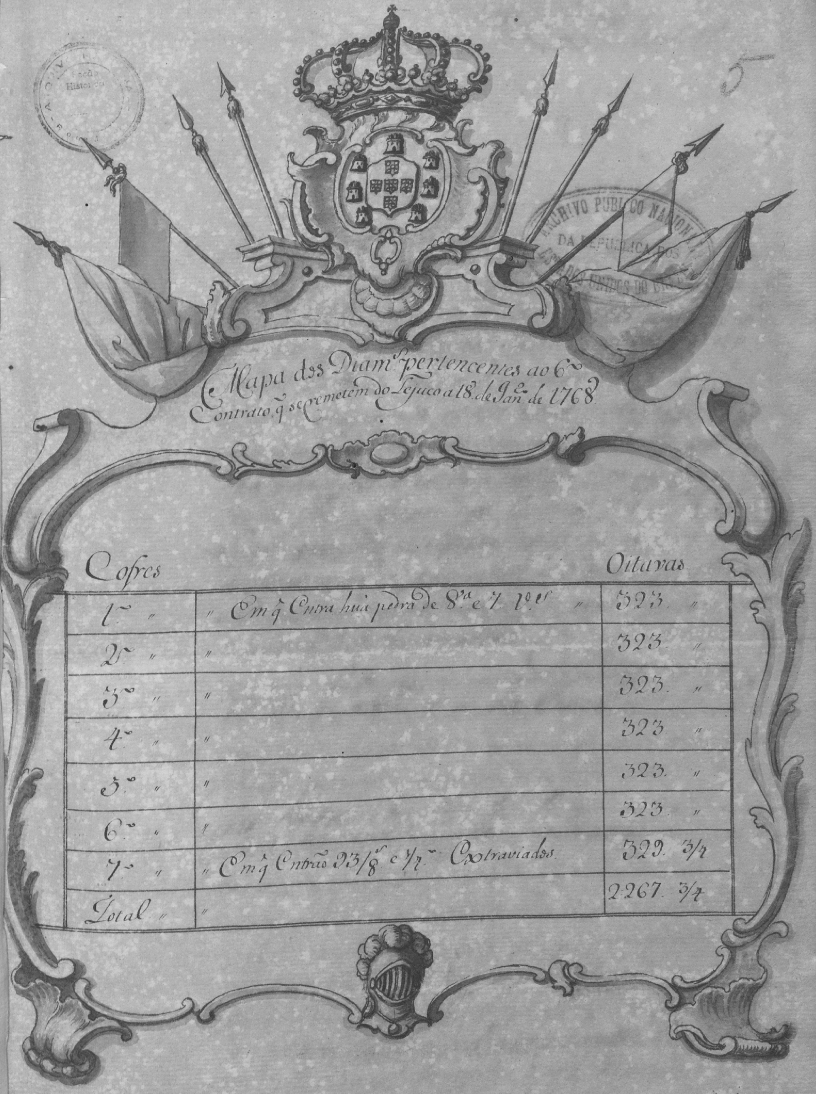 5
ARCHIVO PUBLICO NACIONAL
DA REPUBLICA DOS
EST. DOS UNIDOS DO BRAZIL
Mapa dos Diam.s pertencentes ao 6.º
Contrato, q̃ se remetem do Tejuco a 18 de Jan.º de 1768
Cofres Oitavas
1.º " " Em q̃ Entra huã pedra de 8.ª e 7 " 323. "
2.º " " 323. "
3.º " " 323. "
4.º " " 323 "
5.º " " 323. "
6.º " " 323 "
7.º " " Em q̃ Entrão 23/8.s e 3/4 Extraviados. 329. 3/4
Total " " 2267. 3/4